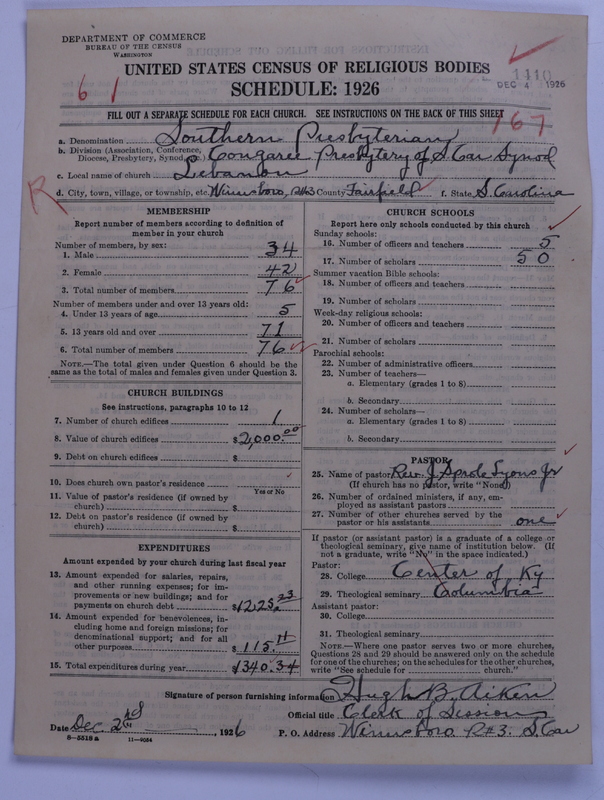 DEPARTMENT OF COMMERCE
BUREAU OF THE CENSUS
WASHINGTON
UNITED STATES CENSUS OF RELIGIOUS BODIES
SCHEDULE: 1926
1410
DEC 4 1926
6 1
FILL OUT A SEPARATE SCHEDULE FOR EACH CHURCH. SEE INSTRUCTIONS ON THE BACK OF THIS SHEET
167
a. Denomination Southern Presbyterian
b. Division (Association, Conference, Diocese, Presbytery, Synod, etc.) Congaree Presbytery of S Car Synod
c. Local name of church Lebanon
R
d. City, town, village, or township, etc. Winnsboro, R#3 County Fairfield f. State S. Carolina
MEMBERSHIP
Report number of members according to definition of
member in your church
Number of members, by sex:
1. Male 34
2. Female 42
3. Total number of members 76
Number of members under and over 13 years old:
4. Under 13 years of age 5
5. 13 years old and over 71
6. Total number of members 76
NOTE.—The total given under Question 6 should be the
same as the total of males and females given under Question 3.
CHURCH BUILDINGS
See instructions, paragraphs 10 to 12
7. Number of church edifices 1
8. Value of church edifices $2,000.00
9. Debt on church edifices $
10. Does church own pastor's residence
Yes or No
11. Value of pastor's residence (if owned by
church) $
12. Debt on pastor's residence (if owned by
church) $
EXPENDITURES
Amount expended by your church during last fiscal year
13. Amount expended for salaries, repairs,
and other running expenses; for im-
provements or new buildings; and for
payments on church debt $1225.23
14. Amount expended for benevolences, in-
cluding home and foreign missions; for
denominational support; and for all
other purposes $115.11
15. Total expenditures during year $1340.34
CHURCH SCHOOLS
Report here only schools conducted by this church
Sunday schools:
16. Number of officers and teachers 5
17. Number of scholars 50
Summer vacation Bible schools:
18. Number of officers and teachers
19. Number of scholars
Week-day religious schools:
20. Number of officers and teachers
21. Number of scholars
Parochial schools:
22. Number of administrative officers
23. Number of teachers—
a. Elementary (grades 1 to 8)
b. Secondary
24. Number of scholars—
a. Elementary (grades 1 to 8)
b. Secondary
PASTOR
25. Name of pastor Rev. J Sprole Lyons Jr
(If church has no pastor, write "None")
26. Number of ordained ministers, if any, em-
ployed as assistant pastors
27. Number of other churches served by the
pastor or his assistants one
If pastor (or assistant pastor) is a graduate of a college or
theological seminary, give name of institution below. (If
not a graduate, write "No" in the space indicated.)
Pastor:
28. College Center of Ky
29. Theological seminary Columbia
Assistant pastor:
30. College
31. Theological seminary
NOTE.—Where one pastor serves two or more churches,
Questions 28 and 29 should be answered only on the schedule
for one of the churches; on the schedules for the other churches,
write "See schedule for church."
Signature of person furnishing information Hugh B. Aiken
Official title Clerk of Session
Date Dec. 2nd, 1926 P. O. Address Winnsboro R#3. S. Car
8—5518 a 11—9064